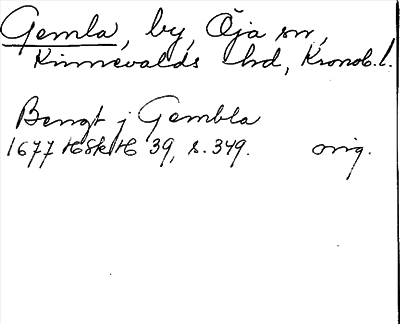 Gemla, by, Öja sn,
Kinnevalds hd, Kronob.l.
Bengt j Gembla
1677 HSkH 39, s. 349. orig.